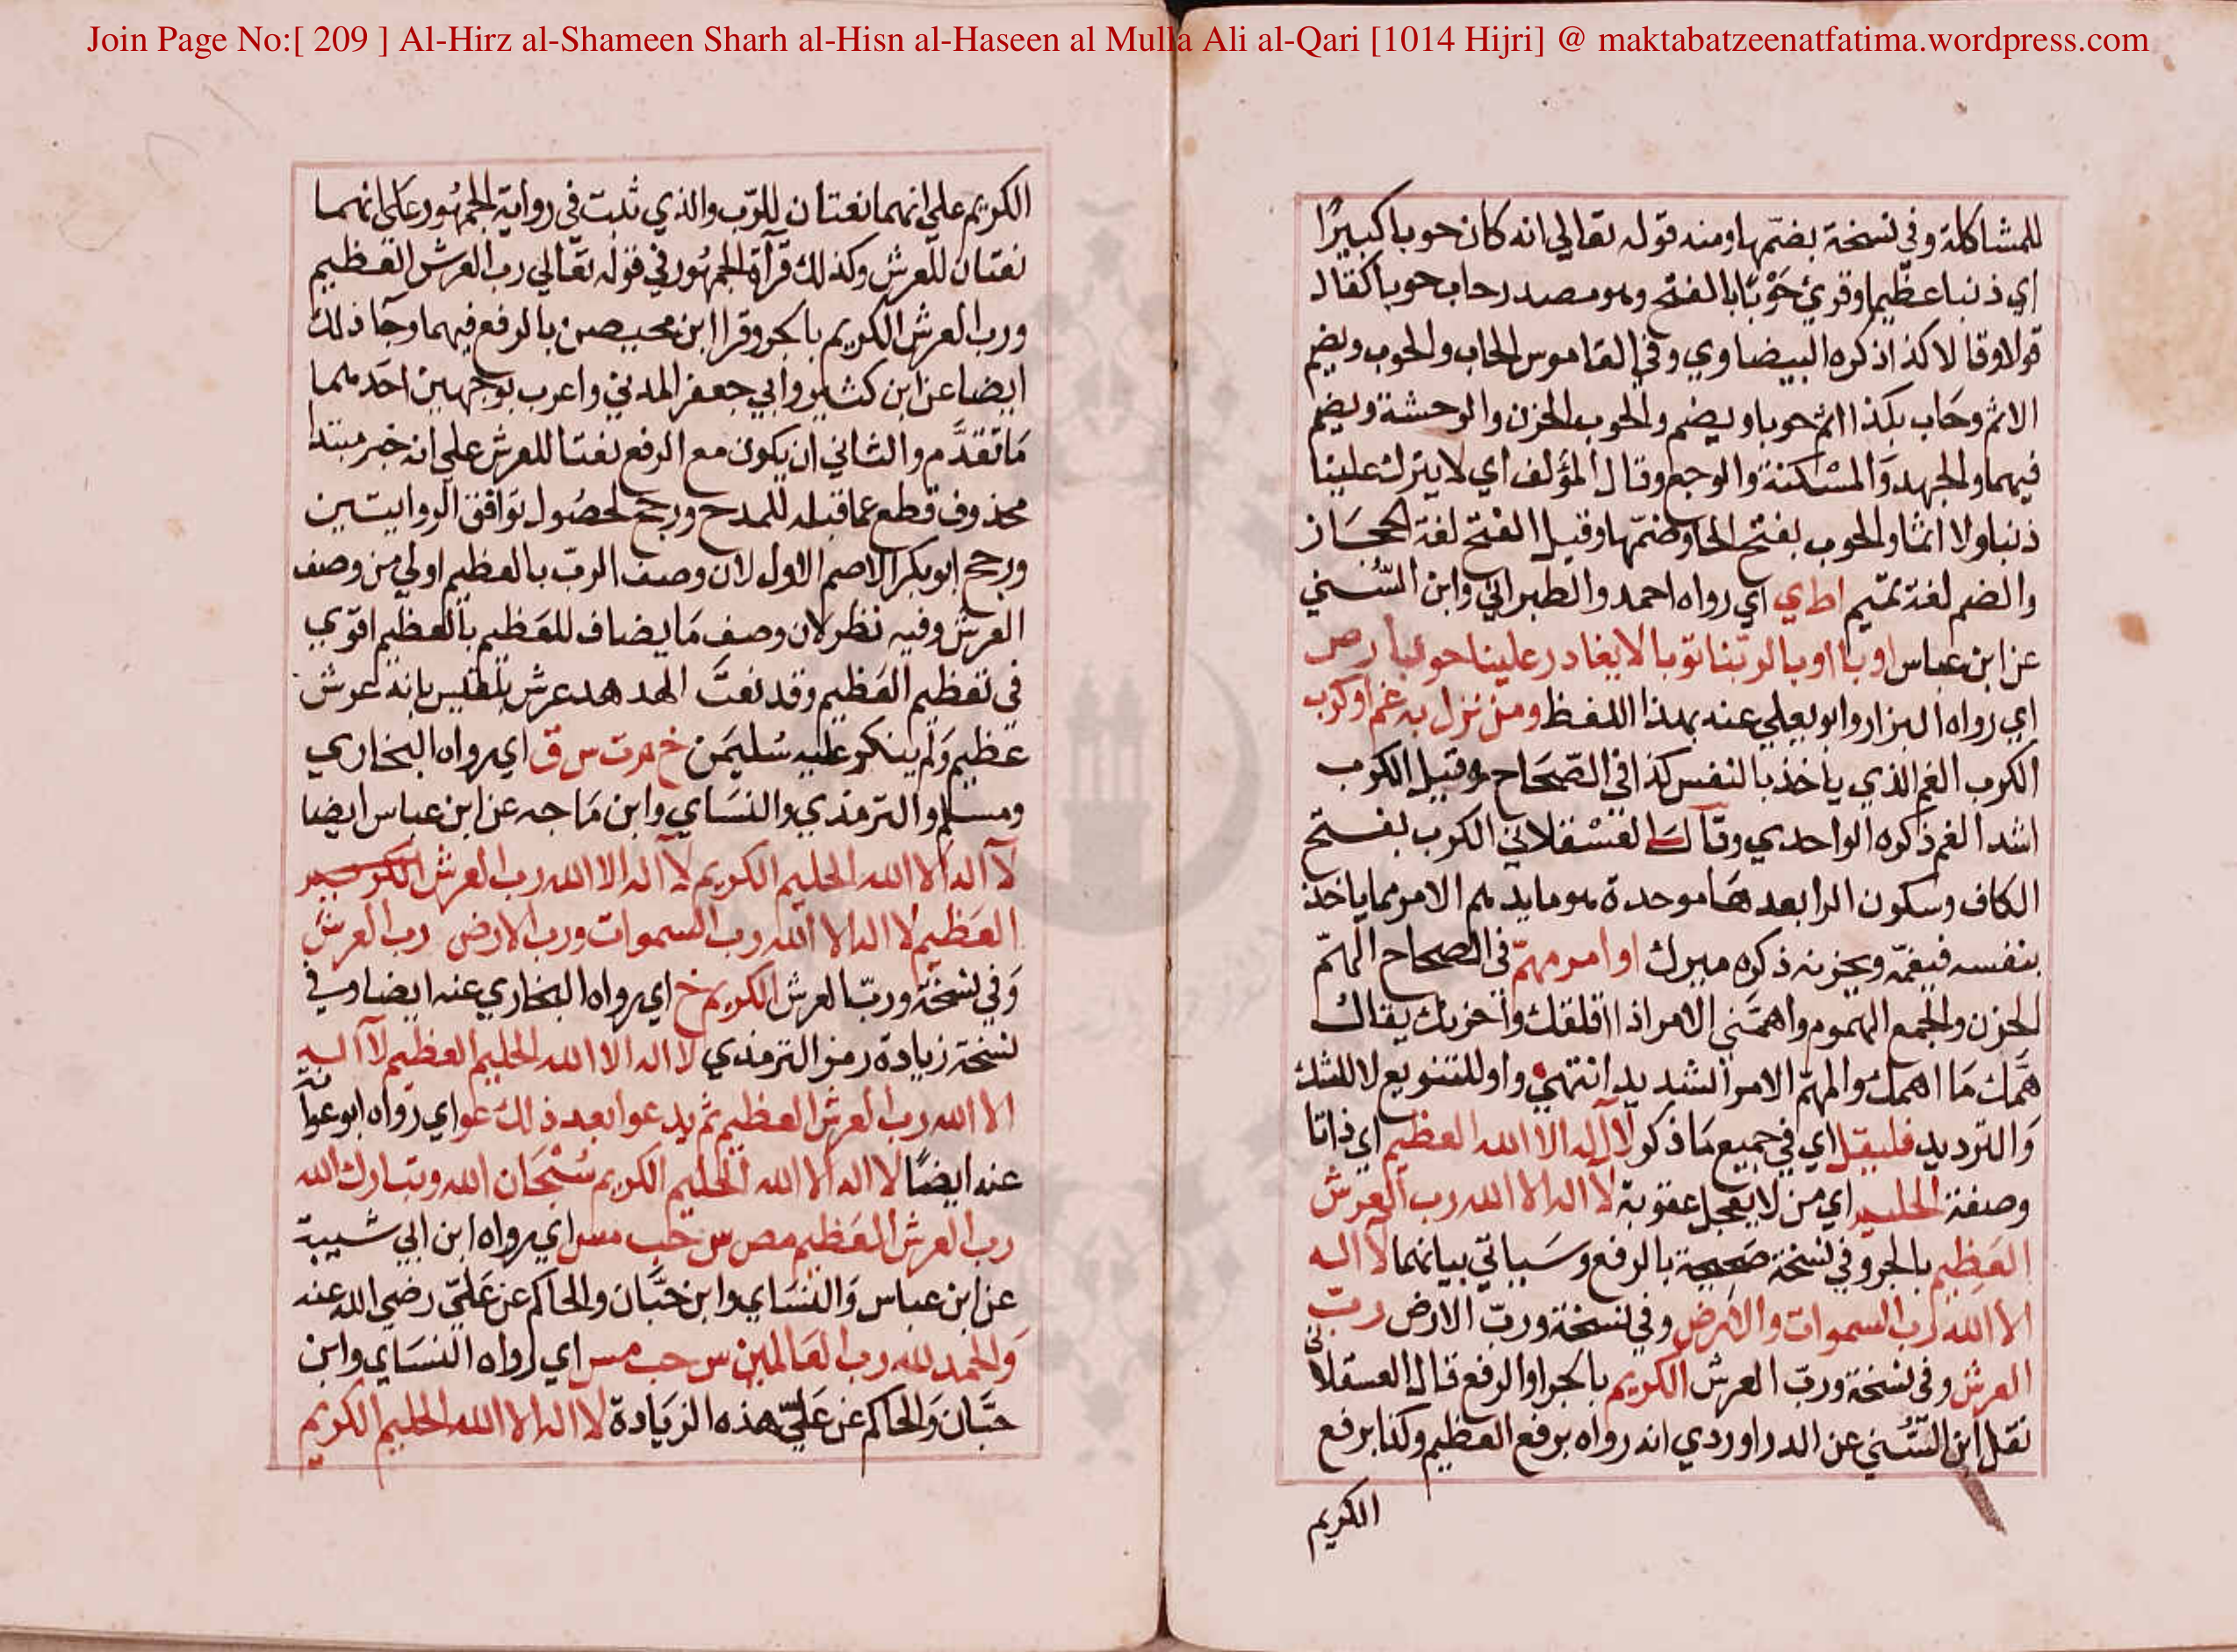 Join Page No:[ 209 ] Al-Hirz al-Shameen Sharh al-Hisn al-Haseen al Mulla Ali al-Qari [1014 Hijri] @ maktabatzeenatfatima.wordpress.com
للمشاكلة وفي نسخة بضمها ومنه قوله تعالي انه كان حوبا كبيرًا
اي ذنبا عظيما وقرئ حَوْبًا بالفتح وهو مصدر حاب حوبا كقال
قولا وقالا كذا ذكره البيضاوي وفي القاموس الحاب والحوب ويضم
الاثم وحَاب بكذا اثم حوبا ويضم والحوب الحزن والوحشة ويضم
فيهما والجهد وَالمسْكنة والوجع وقال المؤلف اي لا يترك علينا
ذنبا ولا اثما والحوب بفتح الحا وضمّها وقيل الفتح لغة الحجَاز
والضم لغة تميم اط ي اي رواه احمد والطبراني وابن السُّني
عن ابن عباس اوبا اوبا لربنا توبا لا يغادر علينا حوبا ر ص
اي رواه البزار وابو يعلي عنه بهذا اللفظ ومن نزل به غم او كرب
الكرب الغم الذي ياخذ بالنفس كذا في الصّحَاح وقيل الكرب
اشد الغم ذكره الواحدي وقال العَسْقلاني الكرب بفتح
الكاف وسكون الرا بعدهَا موحدة هو ما يدهم الامر مما ياخذ
بنفسه فيغمّه ويحزنه ذكره ميرك او امر مهمّ في الصحاح الهمّ
الحزن والجمع الهموم واهمّني الامر اذا اقلقك وأحزنك يقال
همَّك مَا اهمك والمهمّ الامر الشديد انتهي واو للتنويع لا للشك
وَالترديد فليقل اي في جميع مَا ذكر لا اله الا الله العظيم اي ذاتا
وصفة الحليم اي من لا يعجل عقوبة لا اله الا الله رب العرش
العَظِيم بالجر وفي نسْخة صَحيحة بالرفع وسَيياتي بيانهما لا اله
الا الله رب السموات والارض وفي نسخة ورب الارض ربّ
العرش وفي نسْخة وربّ العرش الكريم بالجر او الرفع قال العسقلاني
نقل ابن السُّني عن الدراوردي انه رواه برفع العظيم وكذا برفع
الكريم
الكريم علي انهما نعتان للرّب والذي ثبت في رواية الجمهُور علي انهما
نعتان للعرش وكذلك قرأة الجمهُور في قوله تعَالي رب العرش العظيم
ورب العرش الكريم بالجر وقرا ابن محيصن بالرفع فيهما وجَا ذلك
ايضا عن ابن كثير وابي جعفر المدني واعرب بوجهين احدهما
مَا تقدَّم والثاني ان يكون مع الرفع نعتا للعرش علي انه خبر مبتدا
محذوف قطع عما قبله للمدح ورجح لحصُول توَافق الروايتين
ورجح ابو بكر الاصم الاول لان وصف الربّ بالعظيم اولي من وصف
العرش وفيه نظر لان وصف مَا يضاف للعَظيم بالعظيم اقوي
في تعظيم العَظيم وقد نعتَ الهدهد عرش بلقيس بانه عرش
عظيم وَلم ينكر عليه سُليمَن خ م ت س ق اي رواه البخاري
ومسلم والترمذي والنسَاي وابن مَاجه عن ابن عباس ايضا
لا اله الا الله الحليم الكريم لا اله الا الله رب العرش الكريم
العَظيم لا اله الا الله رب السموات ورب الارض رب العرش
وَفي نسْخة وربّ العرش الكريم خ اي رواه البخاري عنه ايضا وفي
نسْخة زيادة رمز الترمذي لا اله الا الله الحليم العظيم لا اله
الا الله رب العرش العظيم ثم يدعو بعد ذلك عو اي رواه ابو عوانة
عنه ايضًا لا اله الا الله الحَليم الكريم سُبْحَان الله وتبارك الله
رب العرش العَظيم مص س حب مس اي رواه ابن ابي شيبة
عن ابن عباس وَالنسَاي وابن حبَّان والحاكم عن عَليّ رضي الله عنه
وَالحمد لله رب العَالمين س حب مس اي رواه النسَاي وابن
حبَّان وَالحاكم عن عَليّ هذه الزيَادة لا اله الا الله الحليم الكريم